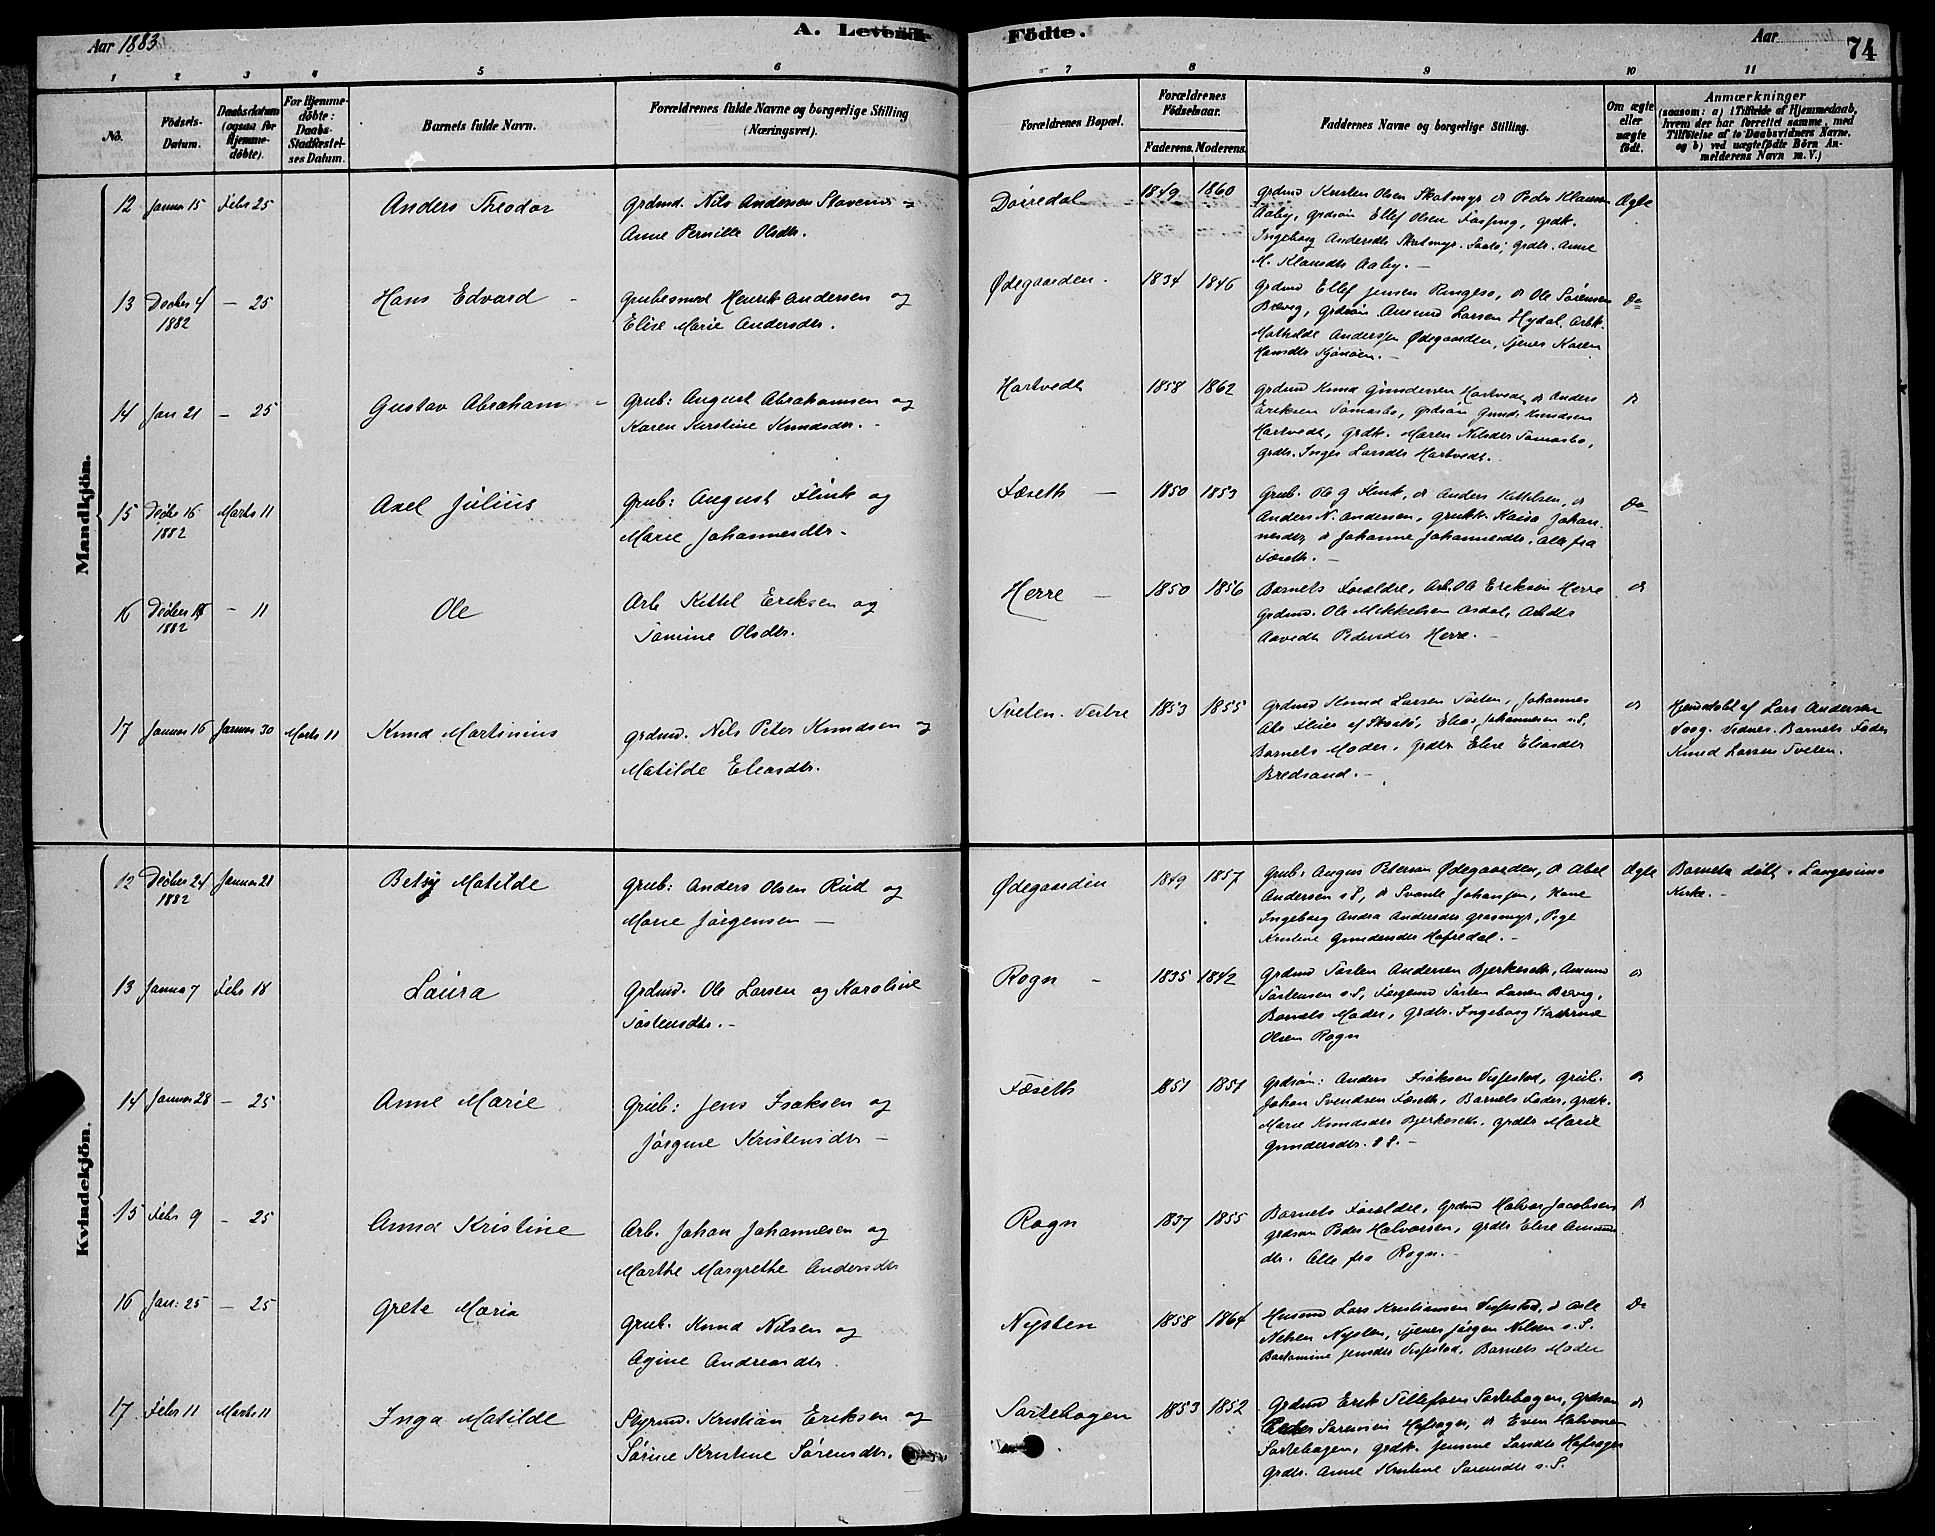 Aar 1883
A. Levende
Födte.
Aar
74
1 2 3 4 5 6 7 8 9 10 11
No.
Födsels-
Datum.
Daabsdatum
(ogsaa for
Hjemme-
döbte).
For Hjemme-
döbte:
Daabs-
Stadfæstel-
ses Datum.
Barnets fulde Navn.
Forældrenes fulde Navne og borgerlige Stilling
(Næringsvei).
Forældrenes Bopæl.
Forældrenes
Födselsaar.
Faderens. Moderens.
Faddernes Navne og borgerlige Stilling.
Om ægte
eller
uægte
födt.
Anmærkninger
(saasom: a) i Tilfælde af Hjemmedaab,
hvem der har forrettet samme, med
Tilföielse af to Daabsvidners Navne,
og b) ved uægtefödte Börn An-
melderens Navn m. V.)
Mandkjön.
12 Januar 15 Febr 25
Anders Theodor
Grdmd. Nils Andersen Stavenes
Anne Pernille Olsdtr.
Dørredal
1849 1860
Grdmd Kristen Olsen Skotmyr Peder Klausen
Aaby, grdsøn Ellef Olsen Fosping, grdk.
Ingeborg Andersdtr Skotmyr. grdtr. Anne
M. Klausdtr Aaby.
Ægte
13 Decbr 4
1882
- 25
Hans Edvard
Grubesmed Henrik Andersen og
Elise Marie Andersdtr.
Ødegaarden.
1834 1846
Grdmd Ellef Jensen Ole Sørensen
Brevig, grdsøn Amund Larsen Hydal, Arbk.
Mathilde Andersen Ødegaarden, Tjener Karen
Hansdtr
Do
14 Jan 21 - 25
Gustav Abraham
Grub: August Abrahamsen og
Karen Kirstine Knudsdtr.
Hartvedt
1858 1862
Grdmd Knud Gundersen Hartvedt Anders
Eriksen Tomasbo, grdsøn Gund. Knudsen
Hartvedt, grdk. Maren Nilsdtr Tomasbo,
grdtr. Inger Larsdtr Hartvedt.
15 Decbr 16
1882
Marts 11
Axel Julius
Grub: August Flink og
Marie Johannesdtr.
Foseth
1850 1853
Grub. Ole G Flink, Anders Kittelsen,
Anders N. Andersen, Grubk. Kaisa Johan-
nesdtr, Johanne Johannesdtr, alle fra
Foseth.
Do
16 Decbr
1882
- 11
Ole
Arb Kittel Eriksen og
Tomine Olsdtr.
Herre
1850 1856
Barnets Forældre, Arb. Ole Eriksen Herre
Grdmd. Ole Mikkelsen Asdal, Arbdtr
Pedersdtr Herre.
17 Januar 16 Januar 30 Marts 11
Knud Martinius
Grdmd. Nels Peter Knudsen og
Matilde Eliasdtr.
Tveten Vestre
1853 1855
Grdmd Knud Larsen Tveten, Johannes
Elias Johannesen s.S.
Barnets Moder, grdtr Elise Eliasdtr
Bredsand.
Hjemdøbt af Lars Andersen
Vidner. Barnets Fader
Knud Larsen Tveten.
Kvindekjön.
12 Decber 24
1882
Januar 21
Betsy Matilde
Grub: Anders Olsen Rud og
Marie Jørgensen
Ødegaarden
1849 1857
Grub: August Petersen Ødegaarden, Abel
Andersen s S, Svante Johansen, Kone
Ingeborg Andrea Andersdtr Grasmyr, Pige
Kristine Gundersdtr Hafredal.
Ægte
Barnet døbt i Langesunds
Kirke.
13 Januar 7 Febr 18
Laura
Grdmd. Ole Larsen og Karoline
Torstensdtr.
Rogn
1835 1842
Grdmd Torsten Andersen Bjerkeseth, Amund
Torstensen s.S, Torsten Larsen Brevig,
Barnets Moder, grdtr. Ingeborg Katrine
Olsen Rogn
14 Januar 28 - 25
Anne Marie
Grub: Jens Isaksen og
Jørgine Kristensdtr
Foseth
1851 1851
Grdsøn: Anders Isaksen Vissestad, Grub.
Johan Svendsen Foseth, Barnets Fader, grdk.
Marie Knudsdtr Bjerkeseth, grdtr Marie
Gundersdtr. s S.
15 Febr 9 - 25
Anna Kristine
Arb. Johan Johannesen og
Marthe Margrethe Andersdtr
Rogn
1837 1855
Barnets Forældre, Grdmd Halvor Jacobsen
grdsøn Peder Halvorsen, grdtr Elise Amunds-
dtr. Alle fra Rogn.
16 Jan: 25 - 25
Grete Maria
Grub. Knud Nilsen og
Agine Andreasdtr.
Nysten
1858 1864
Husmd Lars Kristiansen Vissestad, Asle
Nelsen Nysten, Tjener Jörgen Nilsen s.S.
Bartomine Jensdtr Vissestad, Barnets Moder
Do
17. Febr 11 Marts 11
Inga Matilde
Styrmd. Kristian Eriksen og
Sørine Kristine Sørensdtr.
Sortebogen
1853 1852
Grdmd Erik Tellefsen Sortebogen, grdsøn
Peder Sørensen Hafsager, Even Halvorsen
Sortebogen, grdk. Jensine Larsdtr Hafsager
Grdtr. Anne Kristine Sørensdtr s.S.